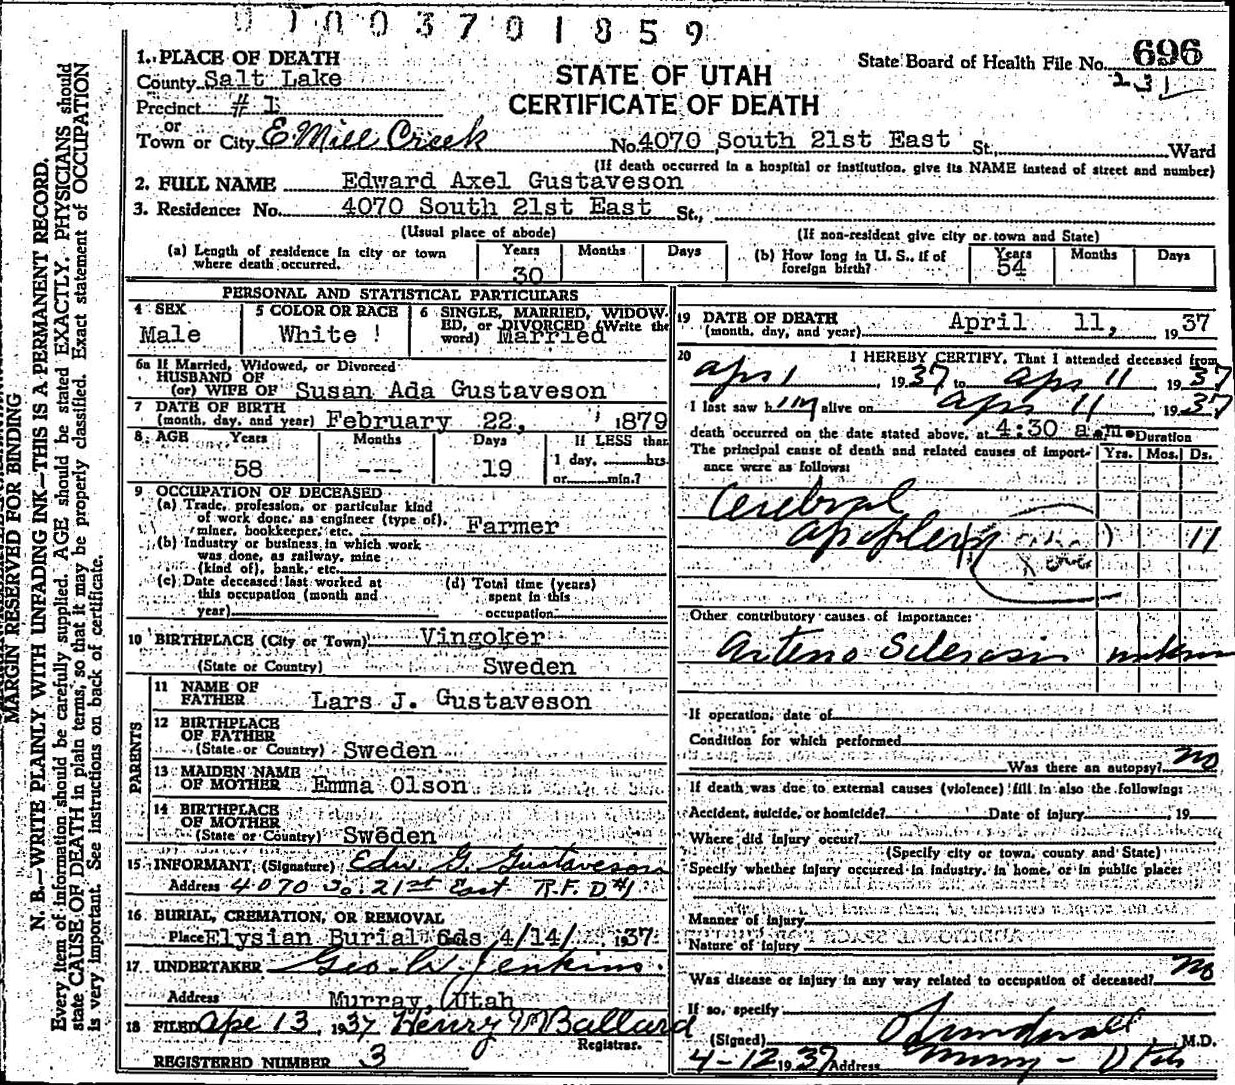 0100370 1859
1. PLACE OF DEATH
County Salt Lake
Precinct # 1
or
Town or City E Mill Creek No. 4070 South 21st East St., Ward
STATE OF UTAH
CERTIFICATE OF DEATH
State Board of Health File No. 696
231
(If death occurred in a hospital or institution, give its NAME instead of street and number)
2. FULL NAME Edward Axel Gustaveson
3. Residence: No. 4070 South 21st East St.,
(Usual place of abode) (If non-resident give city or town and State)
(a) Length of residence in city or town where death occurred. Years 30 Months Days
(b) How long in U. S., if of foreign birth? Years 54 Months Days
PERSONAL AND STATISTICAL PARTICULARS
4 SEX Male
5 COLOR OR RACE White
6 SINGLE, MARRIED, WIDOWED, or DIVORCED (Write the word) Married
6a If Married, Widowed, or Divorced
HUSBAND OF
(or) WIFE OF Susan Ada Gustaveson
7 DATE OF BIRTH
(month, day, and year) February 22, 1879
8. AGE Years Months Days If LESS than
58 --- 19 1 day, hrs.
or min.?
9 OCCUPATION OF DECEASED
(a) Trade, profession, or particular kind
of work done, as engineer (type of),
miner, bookkeeper, etc. Farmer
(b) Industry or business in which work
was done, as railway, mine
(kind of), bank, etc.
(c) Date deceased last worked at
this occupation (month and
year)
(d) Total time (years)
spent in this
occupation
10 BIRTHPLACE (City or Town) Vingoker
(State or Country) Sweden
PARENTS
11 NAME OF
FATHER Lars J. Gustaveson
12 BIRTHPLACE
OF FATHER
(State or Country) Sweden
13 MAIDEN NAME
OF MOTHER Emma Olson
14 BIRTHPLACE
OF MOTHER
(State or Country) Sweden
15 INFORMANT (Signature) Edw. G. Gustaveson
Address 4070 So. 21st East R.F.D #1
16 BURIAL, CREMATION, OR REMOVAL
Place Elysian Burial Gds 4/14/ 1937
17 UNDERTAKER Geo. W. Jenkins.
Address Murray, Utah
18 FILED Apr 13, 1937 Henry M Ballard
Registrar.
REGISTERED NUMBER 3
19 DATE OF DEATH
(month, day, and year) April 11, 1937
20 I HEREBY CERTIFY, That I attended deceased from
Apr 1, 1937 to Apr 11 1937
I last saw him alive on Apr 11 1937
death occurred on the date stated above, at 4:30 a.m. Duration
The principal cause of death and related causes of importance were as follows: Yrs. Mos. Ds.
Cerebral
apoplexy 11
Other contributory causes of importance:
Arterio Sclerosis
If operation, date of
Condition for which performed
Was there an autopsy? No
If death was due to external causes (violence) fill in also the following:
Accident, suicide, or homicide? Date of injury , 19
Where did injury occur?
(Specify city or town, county and State)
Specify whether injury occurred in industry, in home, or in public place:
Manner of injury
Nature of injury
Was disease or injury in any way related to occupation of deceased? No
If so, specify
(Signed) M.D.
4-12 1937 Address Murray - Utah
MARGIN RESERVED FOR BINDING
N. B.—WRITE PLAINLY WITH UNFADING INK—THIS IS A PERMANENT RECORD.
Every item of information should be carefully supplied. AGE should be stated EXACTLY. PHYSICIANS should
state CAUSE OF DEATH in plain terms, so that it may be properly classified. Exact statement of OCCUPATION
is very important. See instructions on back of certificate.